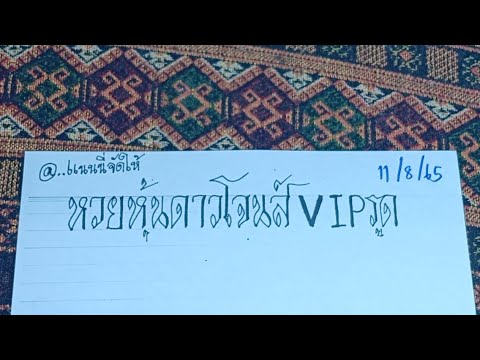 @..แนนนี่จัดให้ 11/8/65
หวยหุ้นดาวโจนส์ VIP รูด